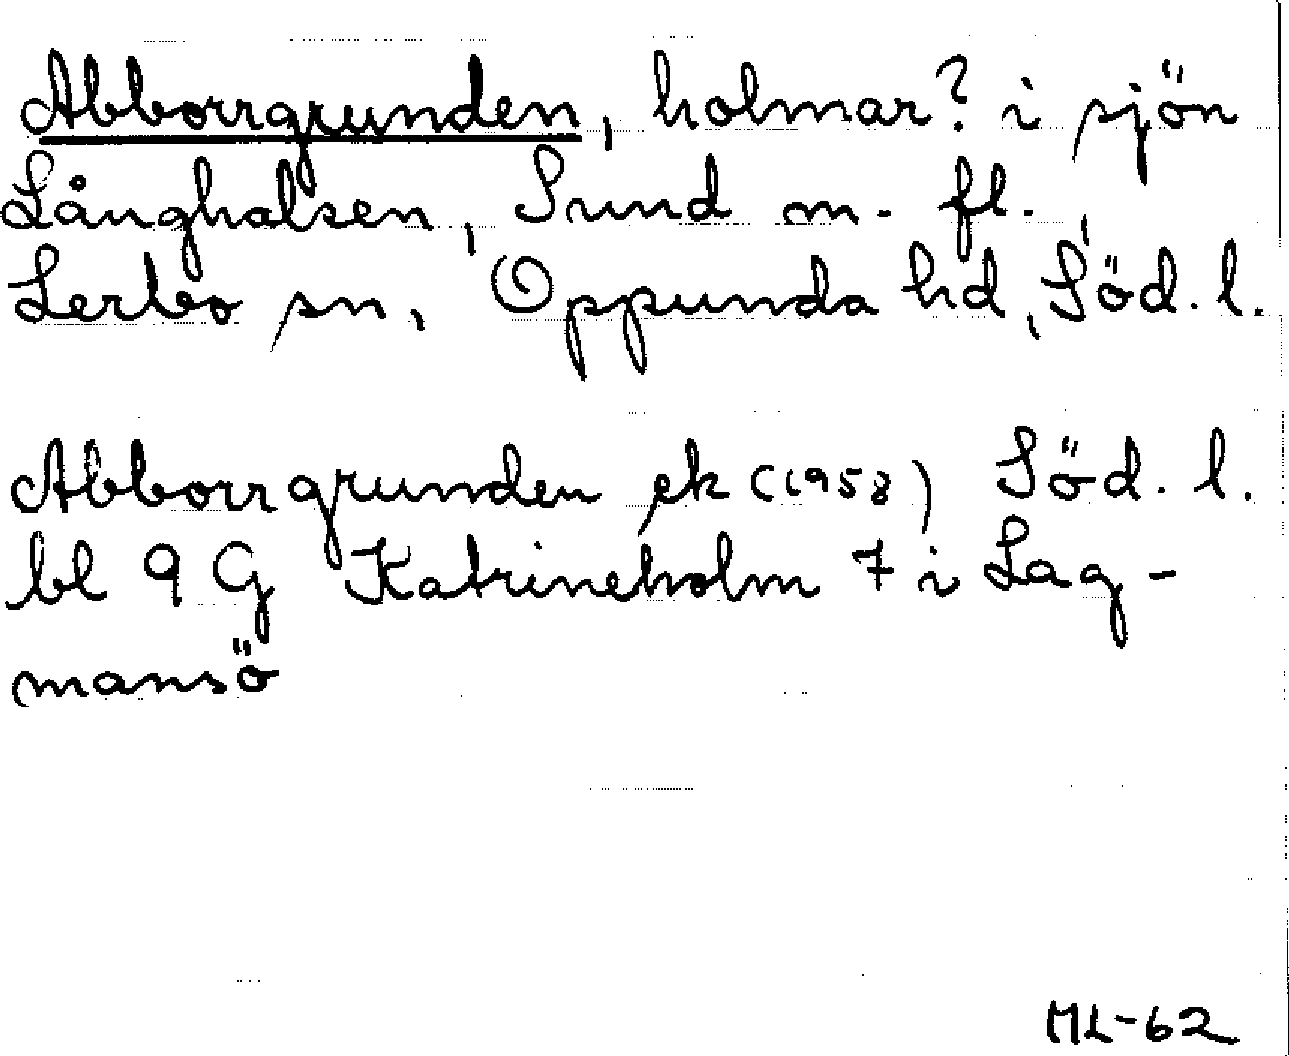 Abborrgrunden, holmar? i sjön
Långhalsen, Sund m. fl.,
Lerbo sn, Oppunda hd, Söd. l.
Abborrgrunden ek (1958) Söd. l.
bl 9 G Katrineholm 7 i Lag-
mansö
ML-62